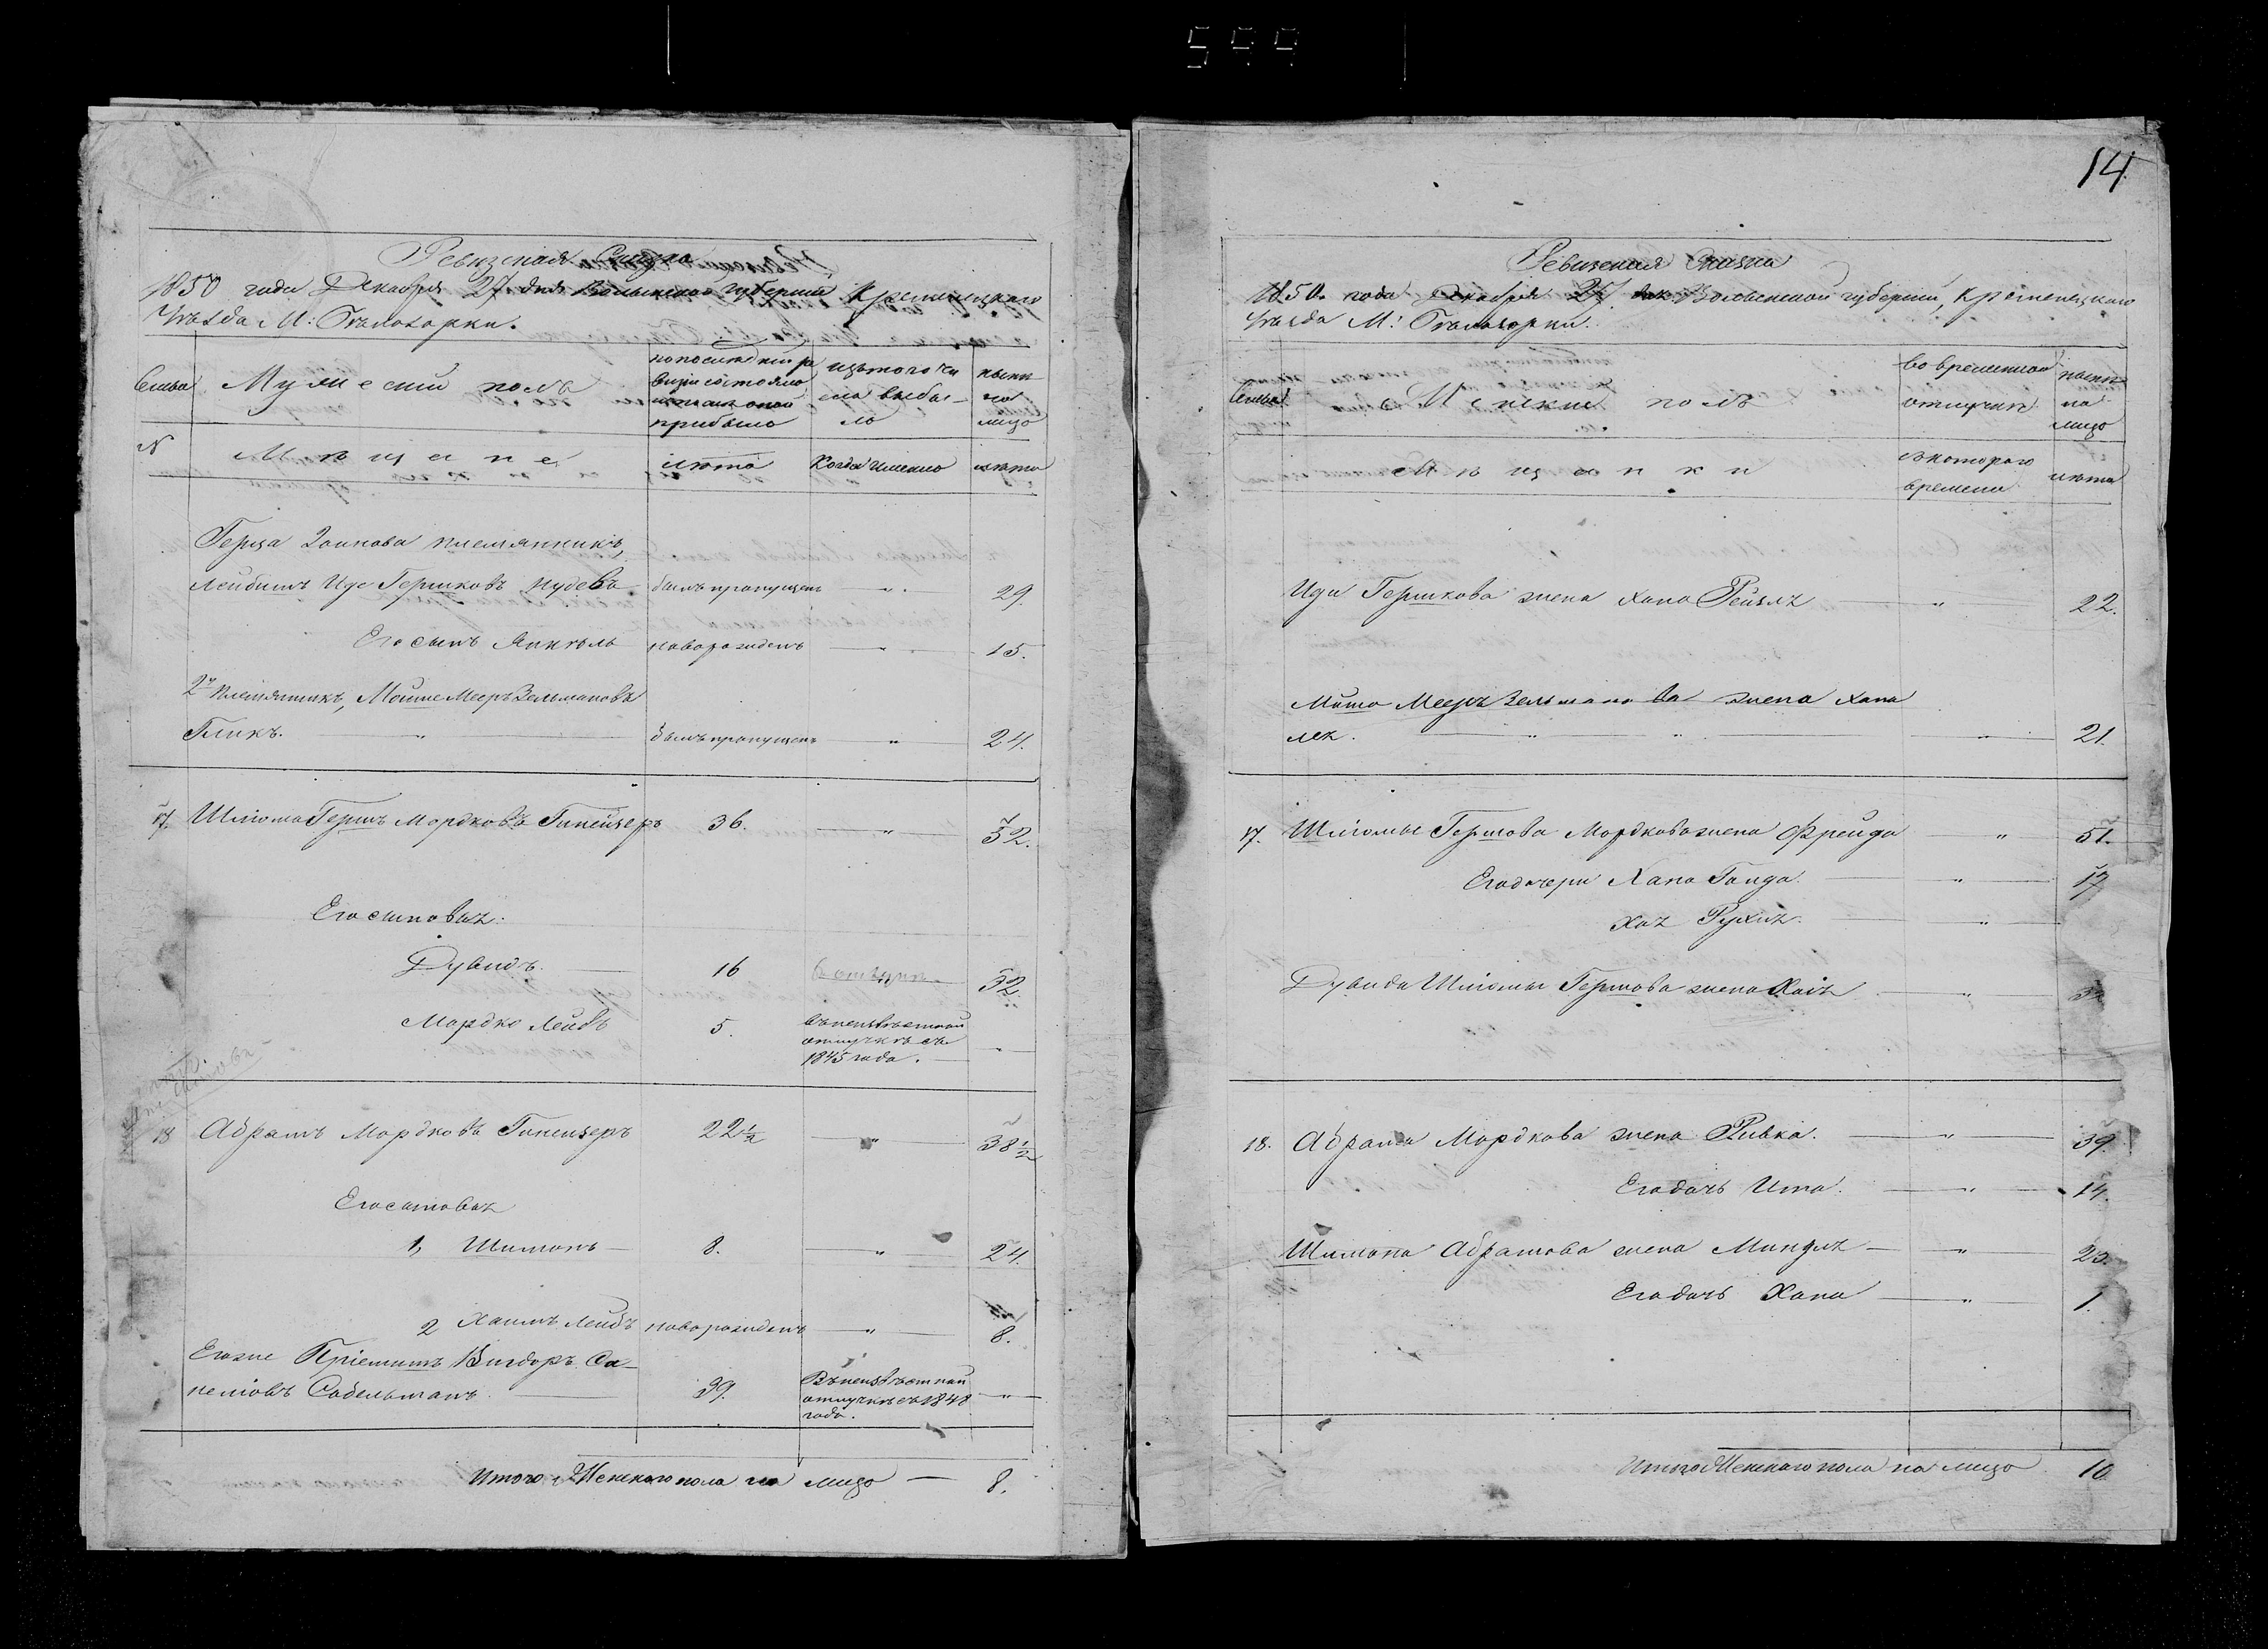 599
Ревизская Сказка
1850 года Декабря 27 дня Волынской губернии Кременецкого
Уѣзда М: Бѣлозорки.
Семьи
Мужеский полъ
по последней ре
визіи состояло
и после оной
прибыло
изъ того чи
сла выбы-
ло
ныне
на
лицо
N
Мѣщане
лѣта
Когда именно
лѣта
Герша племянникъ,
Лейбишъ Иде Гершковъ
былъ пропущенъ
"
29.
Его сынъ Янкель
новорожденъ
"
15.
2й племянникъ, Мошко Мееръ Зельмановъ
Гликъ.
"
былъ пропущенъ
"
24.
17.
Шліома Гершъ Мордковъ Гипейзеръ
36.
"
52.
Его сыновья:
Дувидъ.
16
32
Мордко Лейбъ
5.
въ неизвѣстной
отлучкѣ съ
1845 года.
"
18
Абрамъ Мордковъ Гипензеръ
22 1/2
"
38 1/2
Его сыновья
1, Шимонъ
8.
"
24.
2 Хаимъ Лейбъ
новорожденъ
"
8.
Его же Пріемышъ Вигдоръ Са-
неліовъ Сабельманъ
39.
Въ неизвѣстной
отлучкѣ съ 1848
года.
"
Итого Женского пола на лицо
8.
14.
Ревизская Сказка
1850. года Декабря 27. дня Волынской губерніи, Кременецкого
Уѣзда М: Бѣлозорки.
Семьи
Женский полъ
во временной
отлучкѣ
нынѣ
на
лицо
Мѣщанки
съ которого
времени
лѣта
Иди Гершкова жена Хана Рейзлъ
"
22.
Мошко Мееръ Зельманова жена Хана
Леа.
"
"
"
21.
17.
Шліомы Гершова Мордкова жена Фрейда
"
51.
Его дочери Хана Гонда.
"
17
Хая Рухля.
"
Дувида Шліомы Гершова жена Хая
"
32
18.
Абрама Мордкова жена Ривка.
"
39.
Его дочь Ита.
"
14.
Шимона Абрамова жена Миндля
"
23.
Его дочь Хана
"
1.
Итого Женского пола на лицо
10.